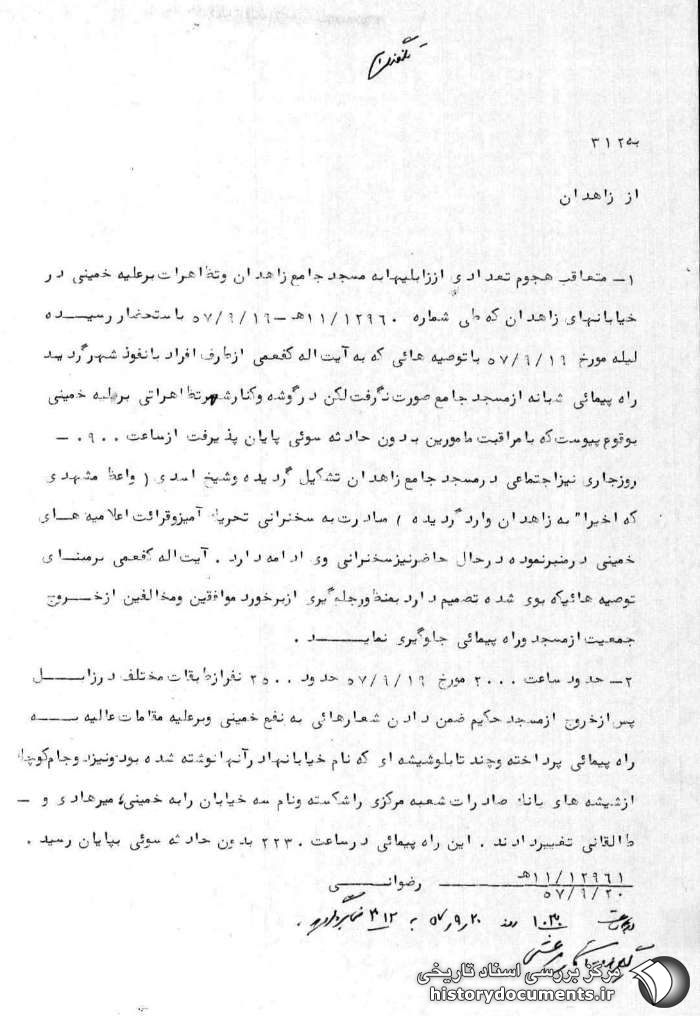 تلفنگرام
به ۳۱۲
از زاهدان
۱- متعاقب هجوم تعدادی از زابلیها به مسجد جامع زاهدان و تظاهرات بر علیه خمینی در
خیابانهای زاهدان که طی شماره ۱۱/۱۲۹۶۰ هـ - ۵۷/۹/۱۹ باستحضار رسیده
لیله مورخ ۵۷/۹/۱۹ با توصیه هائی که به آیت اله کفعمی از طرف افراد با نفوذ شهر گردید
راه پیمائی شبانه از مسجد جامع صورت نگرفت لکن در گوشه و کنار شهر تظاهراتی بر علیه خمینی
بوقوع پیوست که با مراقبت مامورین بدون حادثه سوئی پایان پذیرفت از ساعت ۰۹۰۰ -
روز جاری نیز اجتماعی در مسجد جامع زاهدان تشکیل گردیده و شیخ اسدی ( واعظ مشهدی
که اخیرا" به زاهدان وارد گردیده ) مبادرت به سخنرانی تحریک آمیز و قرائت اعلامیه های
خمینی در منبر نموده در حال حاضر نیز سخنرانی وی ادامه دارد . آیت اله کفعمی بر مبنای
توصیه هائیکه بوی شده تصمیم دارد بمنظور جلوگیری از برخورد موافقین و مخالفین از خروج
جمعیت از مسجد و راه پیمائی جلوگیری نماید .
۲- حدود ساعت ۲۰۰۰ مورخ ۵۷/۹/۱۹ حدود ۲۵۰۰ نفر از طبقات مختلف در زابل
پس از خروج از مسجد حکیم ضمن دادن شعارهائی به نفع خمینی و بر علیه مقامات عالیه به
راه پیمائی پرداخته و چند تابلو شیشه ای که نام خیابانها در آنها نوشته شده بود و نیز دو جام کوچک
از شیشه های بانک صادرات شعبه مرکزی را شکسته و نام سه خیابان را به خمینی؛ میرهادی و -
طالقانی تغییر دادند . این راه پیمائی در ساعت ۲۲۳۰ بدون حادثه سوئی بپایان رسید .
۱۱/۱۲۹۶۱ هـ
رضوانی
۵۷/۹/۲۰
در ساعت ۱۰۳۰ روز ۵۷/۹/۲۰ به ۳۱۲ مخابره گردید .
مرکز بررسی اسناد تاریخی
historydocuments.ir